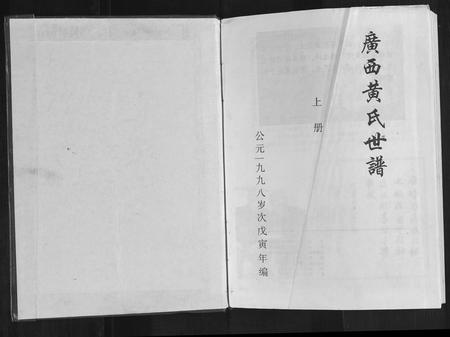 廣西黃氏世譜
上册
公元一九九八岁次戊寅年编